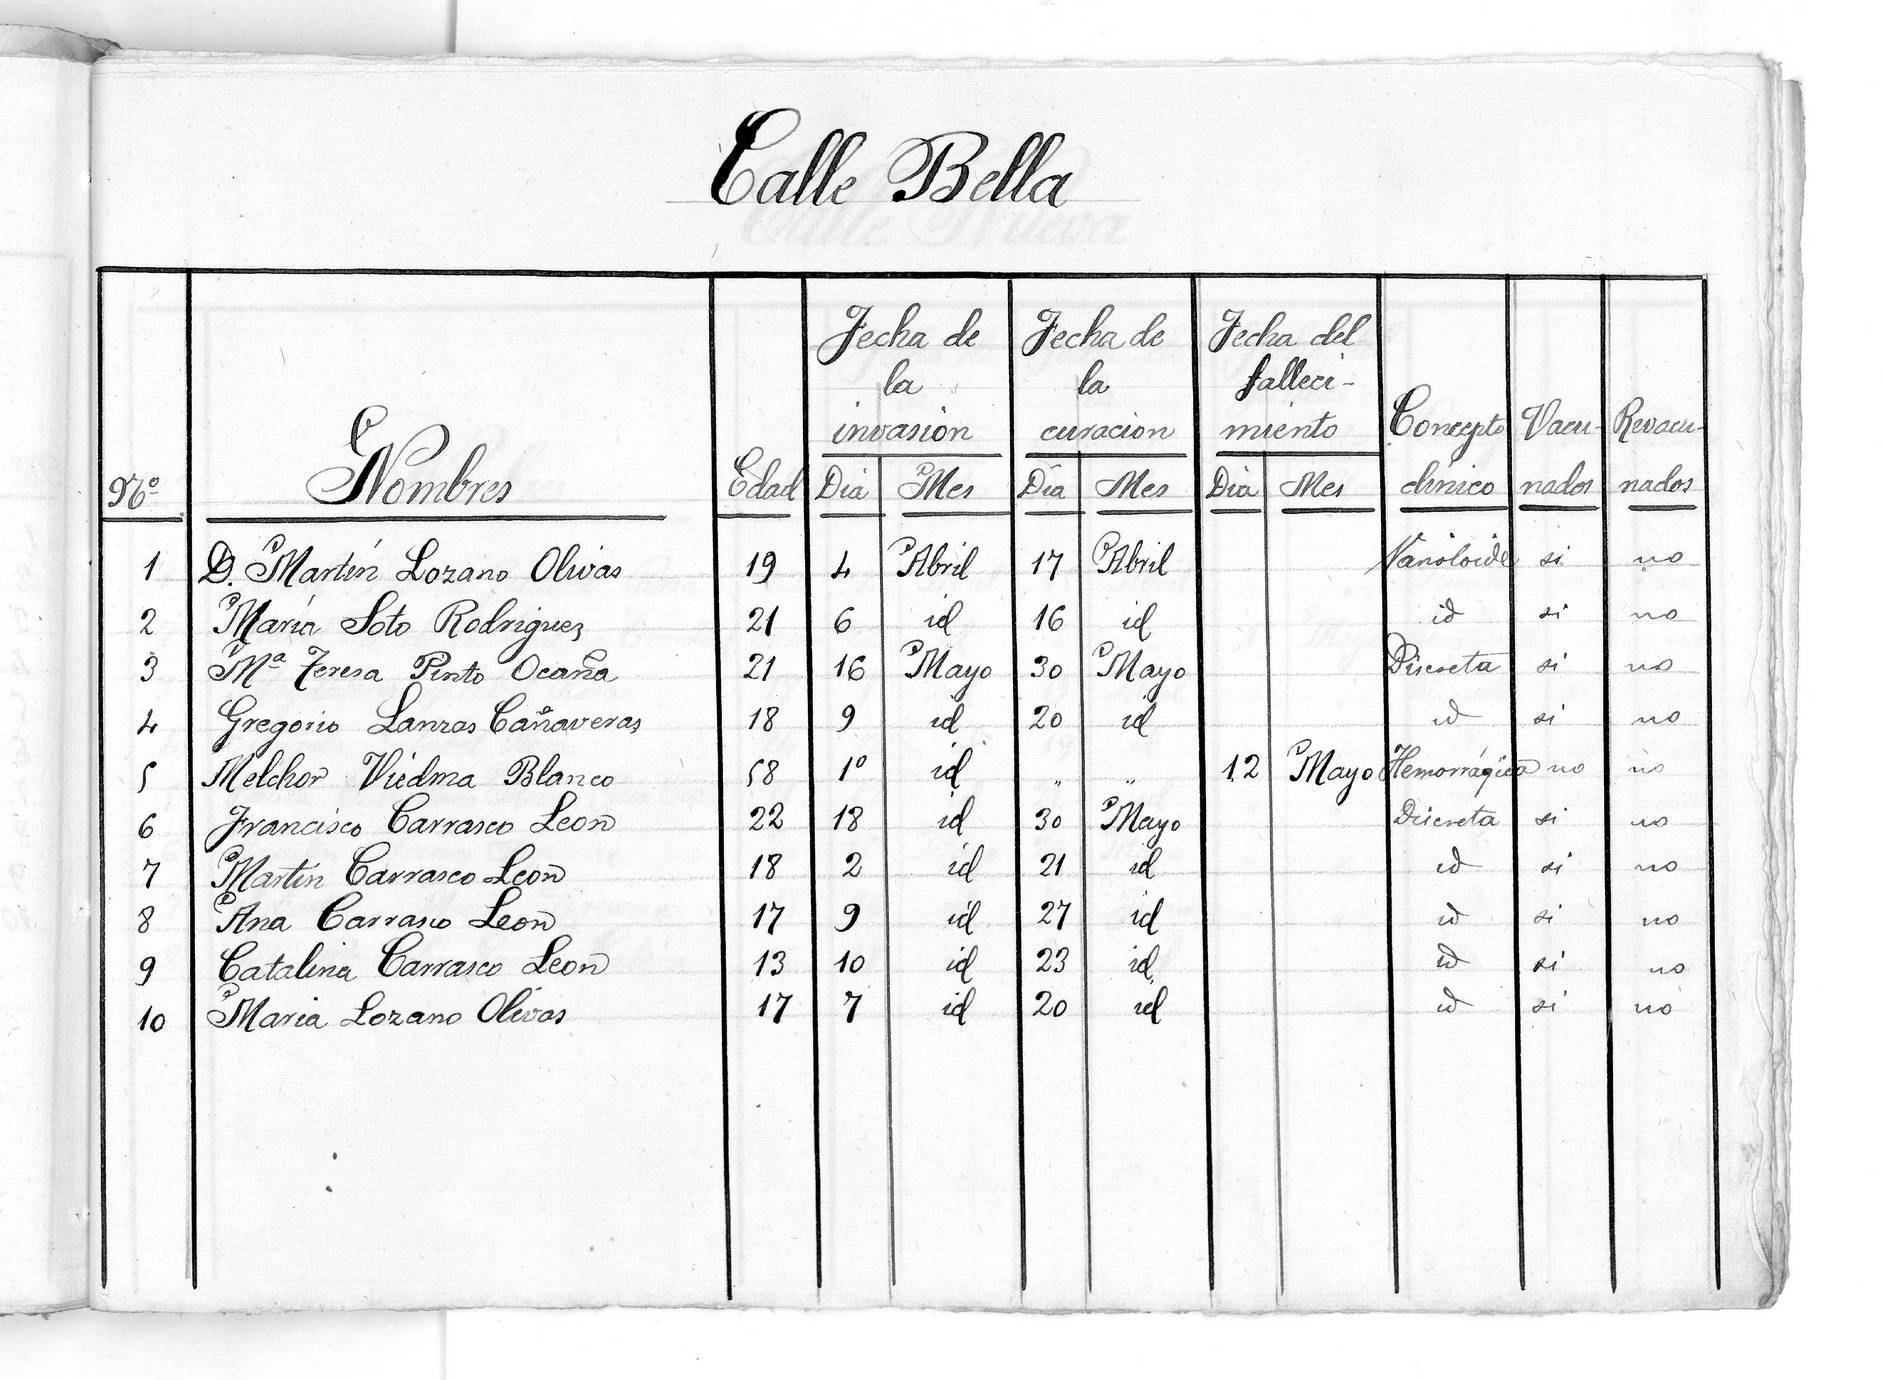 Calle Bella
Nº Nombres Edad Fecha de la invasión Fecha de la curación Fecha del falleci-miento Concepto clínico Vacu-nados Revacu-nados
Dia Mes Dia Mes Dia Mes
1 D. Martín Lozano Olivas 19 4 Abril 17 Abril Varioloide si no
2 María Soto Rodriguez 21 6 id 16 id id si no
3 Mª Teresa Pinto Ocaña 21 16 Mayo 30 Mayo Discreta si no
4 Gregorio Lanzas Cañaveras 18 9 id 20 id id si no
5 Melchor Viedma Blanco 58 1º id " " 12 Mayo Hemorrágica no no
6 Francisco Carrasco León 22 18 id 30 Mayo Discreta si no
7 Martín Carrasco León 18 2 id 21 id id si no
8 Ana Carrasco León 17 9 id 27 id id si no
9 Catalina Carrasco León 13 10 id 23 id id si no
10 Maria Lozano Olivas 17 7 id 20 id id si no